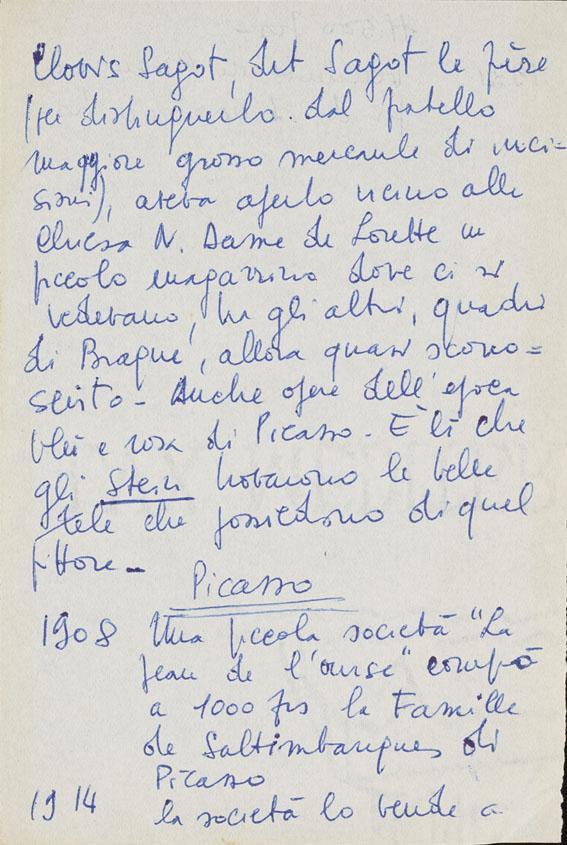 Clovis Sagot, det Sagot le père
(per distinguerlo dal fratello
maggiore grosso mercante di inci=
sioni), aveva aperto vicino alla
Chiesa N. Dame de Lorette un
piccolo magazzino dove ci si
vedevano, tra gli altri, quadri
di Braque, allora quasi scono=
sciuto - Anche opere dell'epoca
bleu e rosa di Picasso - È lì che
gli Stein trovarono le belle
tele che possiedono di quel
pittore -
Picasso
1908 Una piccola società "La
peau de l'ourse" compò
a 1000 frs la Famille
de Saltimbanques di
Picasso
1914 la società lo vende a